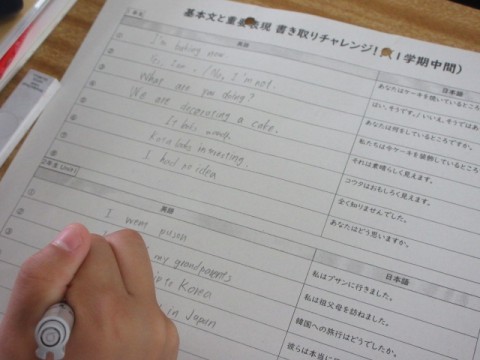 基本文と重要表現 書き取りチャレンジ!(1学期中間)
英語 日本語
① I'm baking now. あなたはケーキを焼いているところ
② Yes, I am. / No, I'm not. はい、そうです。/いいえ、そうではあ
What are you doing? あなたは何をしているところですか。
We are decorating a cake. 私たちは今ケーキを装飾しているところ
It looks それは素晴らしく見えます。
⑥ looks interesting. コウタはおもしろく見えます。
⑦ I had no idea 全く知りませんでした。
⑧ あなたはどう思いますか。
2年生 Unit1
英語 日本語
① I went 私はプサンに行きました。
② my grandparents 私は祖父母を訪ねました。
③ to Korea 韓国への旅行はどうでしたか。
in Japan 彼らは本当に